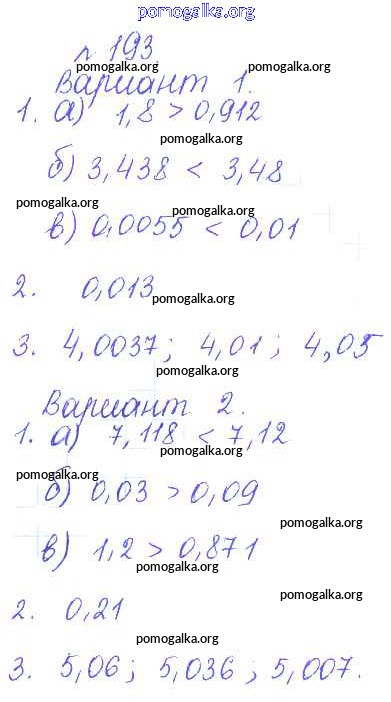 pomogalka.org
№ 193
pomogalka.org pomogalka.org
Вариант 1.
1. а) 1,8 > 0,912
pomogalka.org
б) 3,438 < 3,48
pomogalka.org pomogalka.org
в) 0,0055 < 0,01
2. 0,013
pomogalka.org
3. 4,0037; 4,01; 4,05
pomogalka.org
Вариант 2.
1. а) 7,118 < 7,12
pomogalka.org
pomogalka.org
б) 0,03 > 0,09
pomogalka.org
в) 1,2 > 0,871
pomogalka.org
pomogalka.org
2. 0,21
pomogalka.org
3. 5,06; 5,036; 5,007.
pomogalka.org